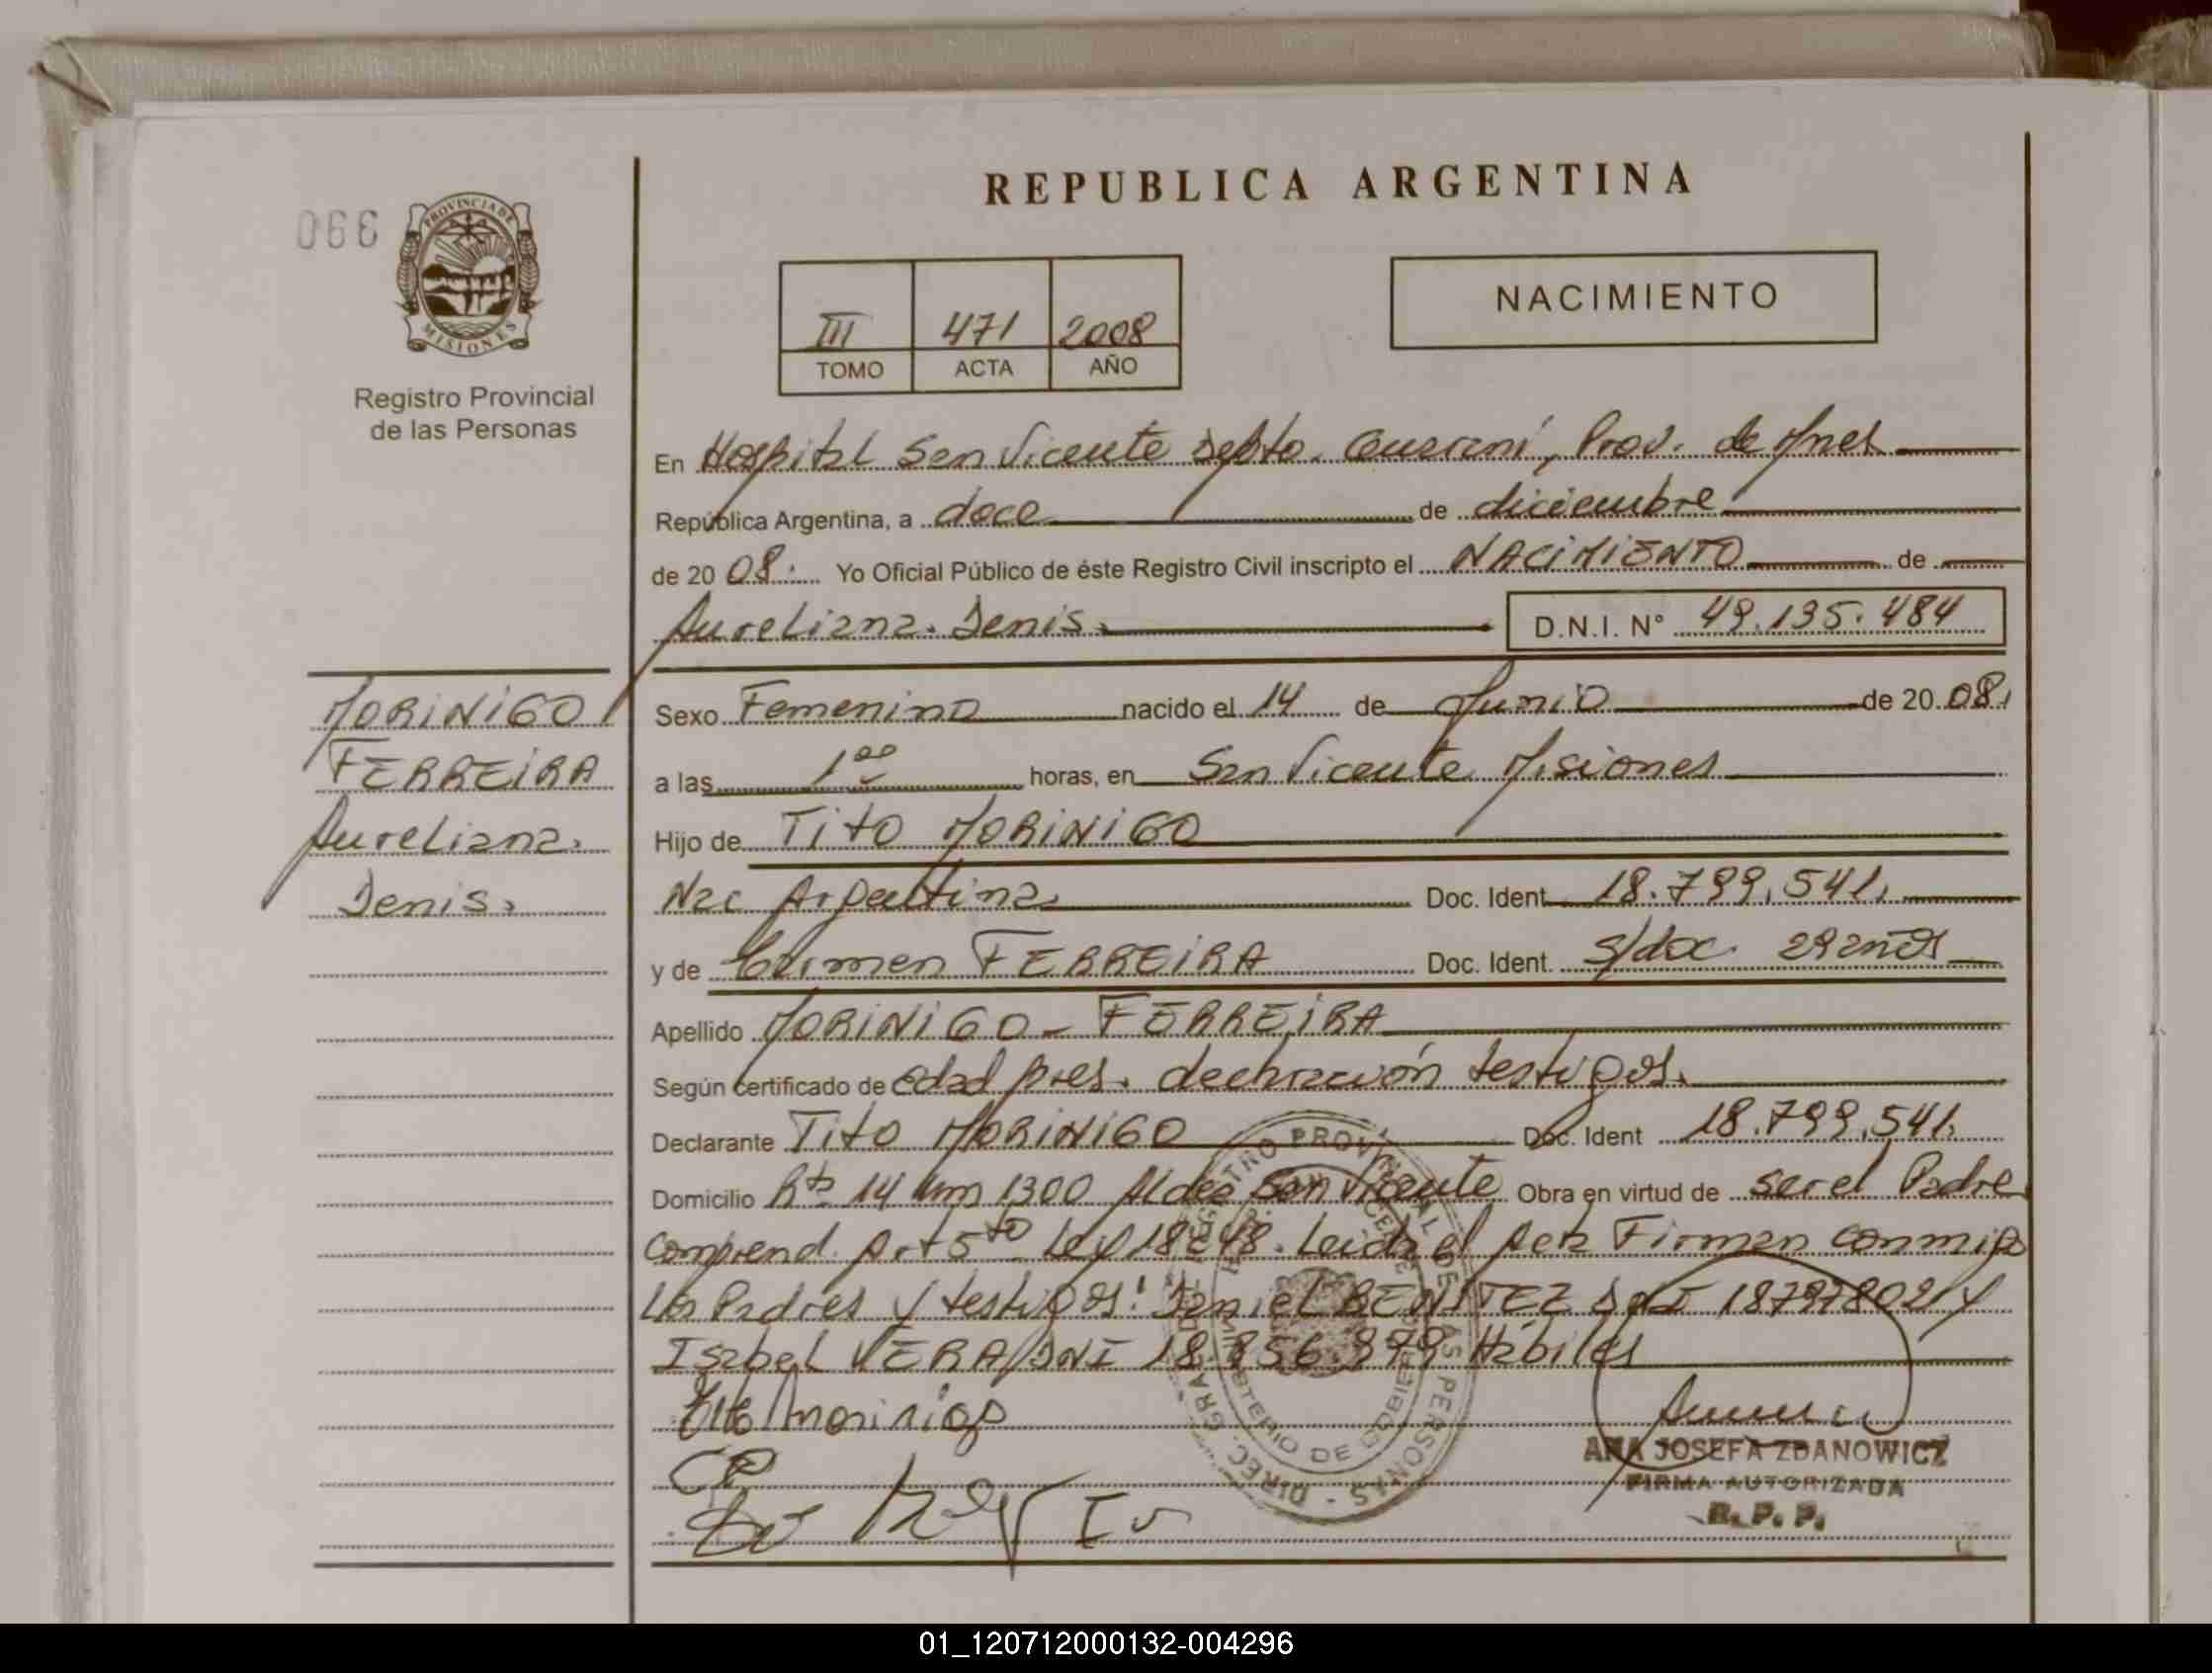 REPUBLICA ARGENTINA
066
PROVINCIA DE
MISIONES
Registro Provincial
de las Personas
III 471 2008
TOMO ACTA AÑO
NACIMIENTO
En Hospital San Vicente Depto. Guaraní, Prov. de Mnes
República Argentina, a doce de diciembre
de 2008. Yo Oficial Público de éste Registro Civil inscripto el NACIMIENTO de
Aureliana. Denis. D.N.I. N° 49.135.484
MORINIGO
FERREIRA
Aureliana.
Denis.
Sexo Femenino nacido el 14 de Junio de 2008.
a las 1⁰⁰ horas, en San Vicente Misiones
Hijo de Tito MORINIGO
Nac Argentina. Doc. Ident 18.799.541.
y de Carmen FERREIRA Doc. Ident. s/doc. 29 años
Apellido MORINIGO - FERREIRA
Según certificado de edad pres. declaración testigos.
Declarante Tito MORINIGO Doc. Ident 18.799.541.
Domicilio Rta 14 km 1300 Aldea San Vicente Obra en virtud de ser el Padre
Comprend. Art 5to Ley 18248. Leida el Acta Firman conmigo
los Padres y testigos: Daniel BENITEZ DNI y
Isabel VERA DNI Hábiles
Tito morinigo
CP
IV
REGISTRO PROVINCIAL DE LAS PERSONAS - DIREC. GRAL.
MINISTERIO DE GOBIERNO
SAN VICENTE
ANA JOSEFA ZDANOWICZ
FIRMA AUTORIZADA
R. P. P.
01_120712000132-004296